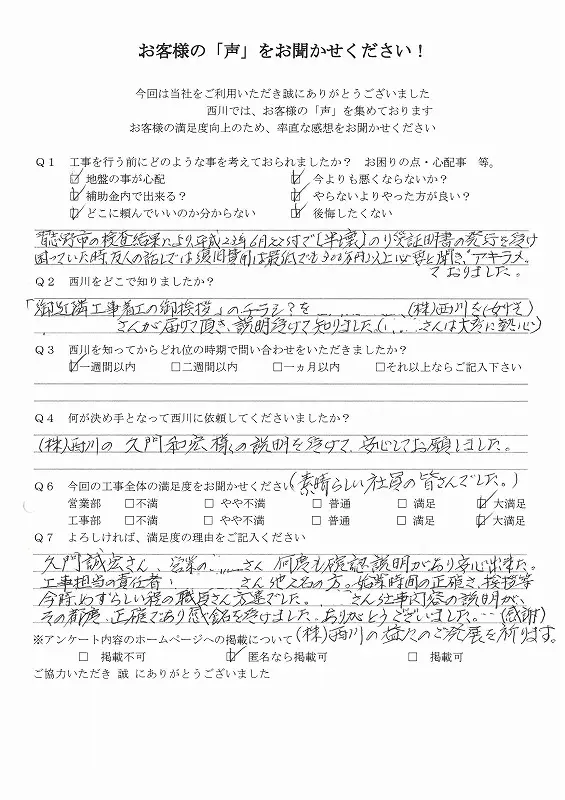 お客様の「声」をお聞かせください！
今回は当社をご利用いただき誠にありがとうございました
西川では、お客様の「声」を集めております
お客様の満足度向上のため、率直な感想をお聞かせください
Ｑ１　工事を行う前にどのような事を考えておられましたか？　お困りの点・心配事　等。
☑ 地盤の事が心配　☑ 今よりも悪くならないか？
☑ 補助金内で出来る？　☑ やらないよりやった方が良い？
☑ どこに頼んでいいのか分からない　☑ 後悔したくない
習志野市の検査結果により、平成23年6月22付で〔半壊〕のり災証明書の発行を受け
困っていた時友人の話しでは復旧費用は最低でも300万円以上必要と聞き、アキラメ
ておりました。
Ｑ２　西川をどこで知りましたか？
「御近隣工事着工の御挨拶」のチラシ？を (株)西川を
さんが届けて頂き、説明受けて知りました。さんは大変に熱心)
Ｑ３　西川を知ってからどれ位の時期で問い合わせをいただきましたか？
☑一週間以内　□二週間以内　□一ヵ月以内　□それ以上ならご記入下さい
Ｑ４　何が決め手となって西川に依頼してくださいましたか？
(株)西川の 久門和宏様の説明を受けて、安心してお願いしました。
Ｑ６　今回の工事全体の満足度をお聞かせください (素晴らしい社員の皆さんでした。)
営業部　□不満　□ やや不満　□ 普通　□ 満足　☑ 大満足
工事部　□不満　□ やや不満　□ 普通　□ 満足　☑ 大満足
Ｑ７　よろしければ、満足度の理由をご記入ください
久門誠宏さん、営業の さん 何度も確認説明があり安心出来た。
工事担当の責任者： さん他2名の方。始業時間の正確さ、挨拶等
今時、わずらしい程の職員さん方達でした。 さん仕事内容の説明が、
その都度、正確であり感銘を受けました。ありがとうございました。…(感謝)
(株)西川の益々のご発展を祈ります。
※アンケート内容のホームページへの掲載について
□　掲載不可　☑　匿名なら掲載可　□　掲載可
ご協力いただき 誠 にありがとうございました